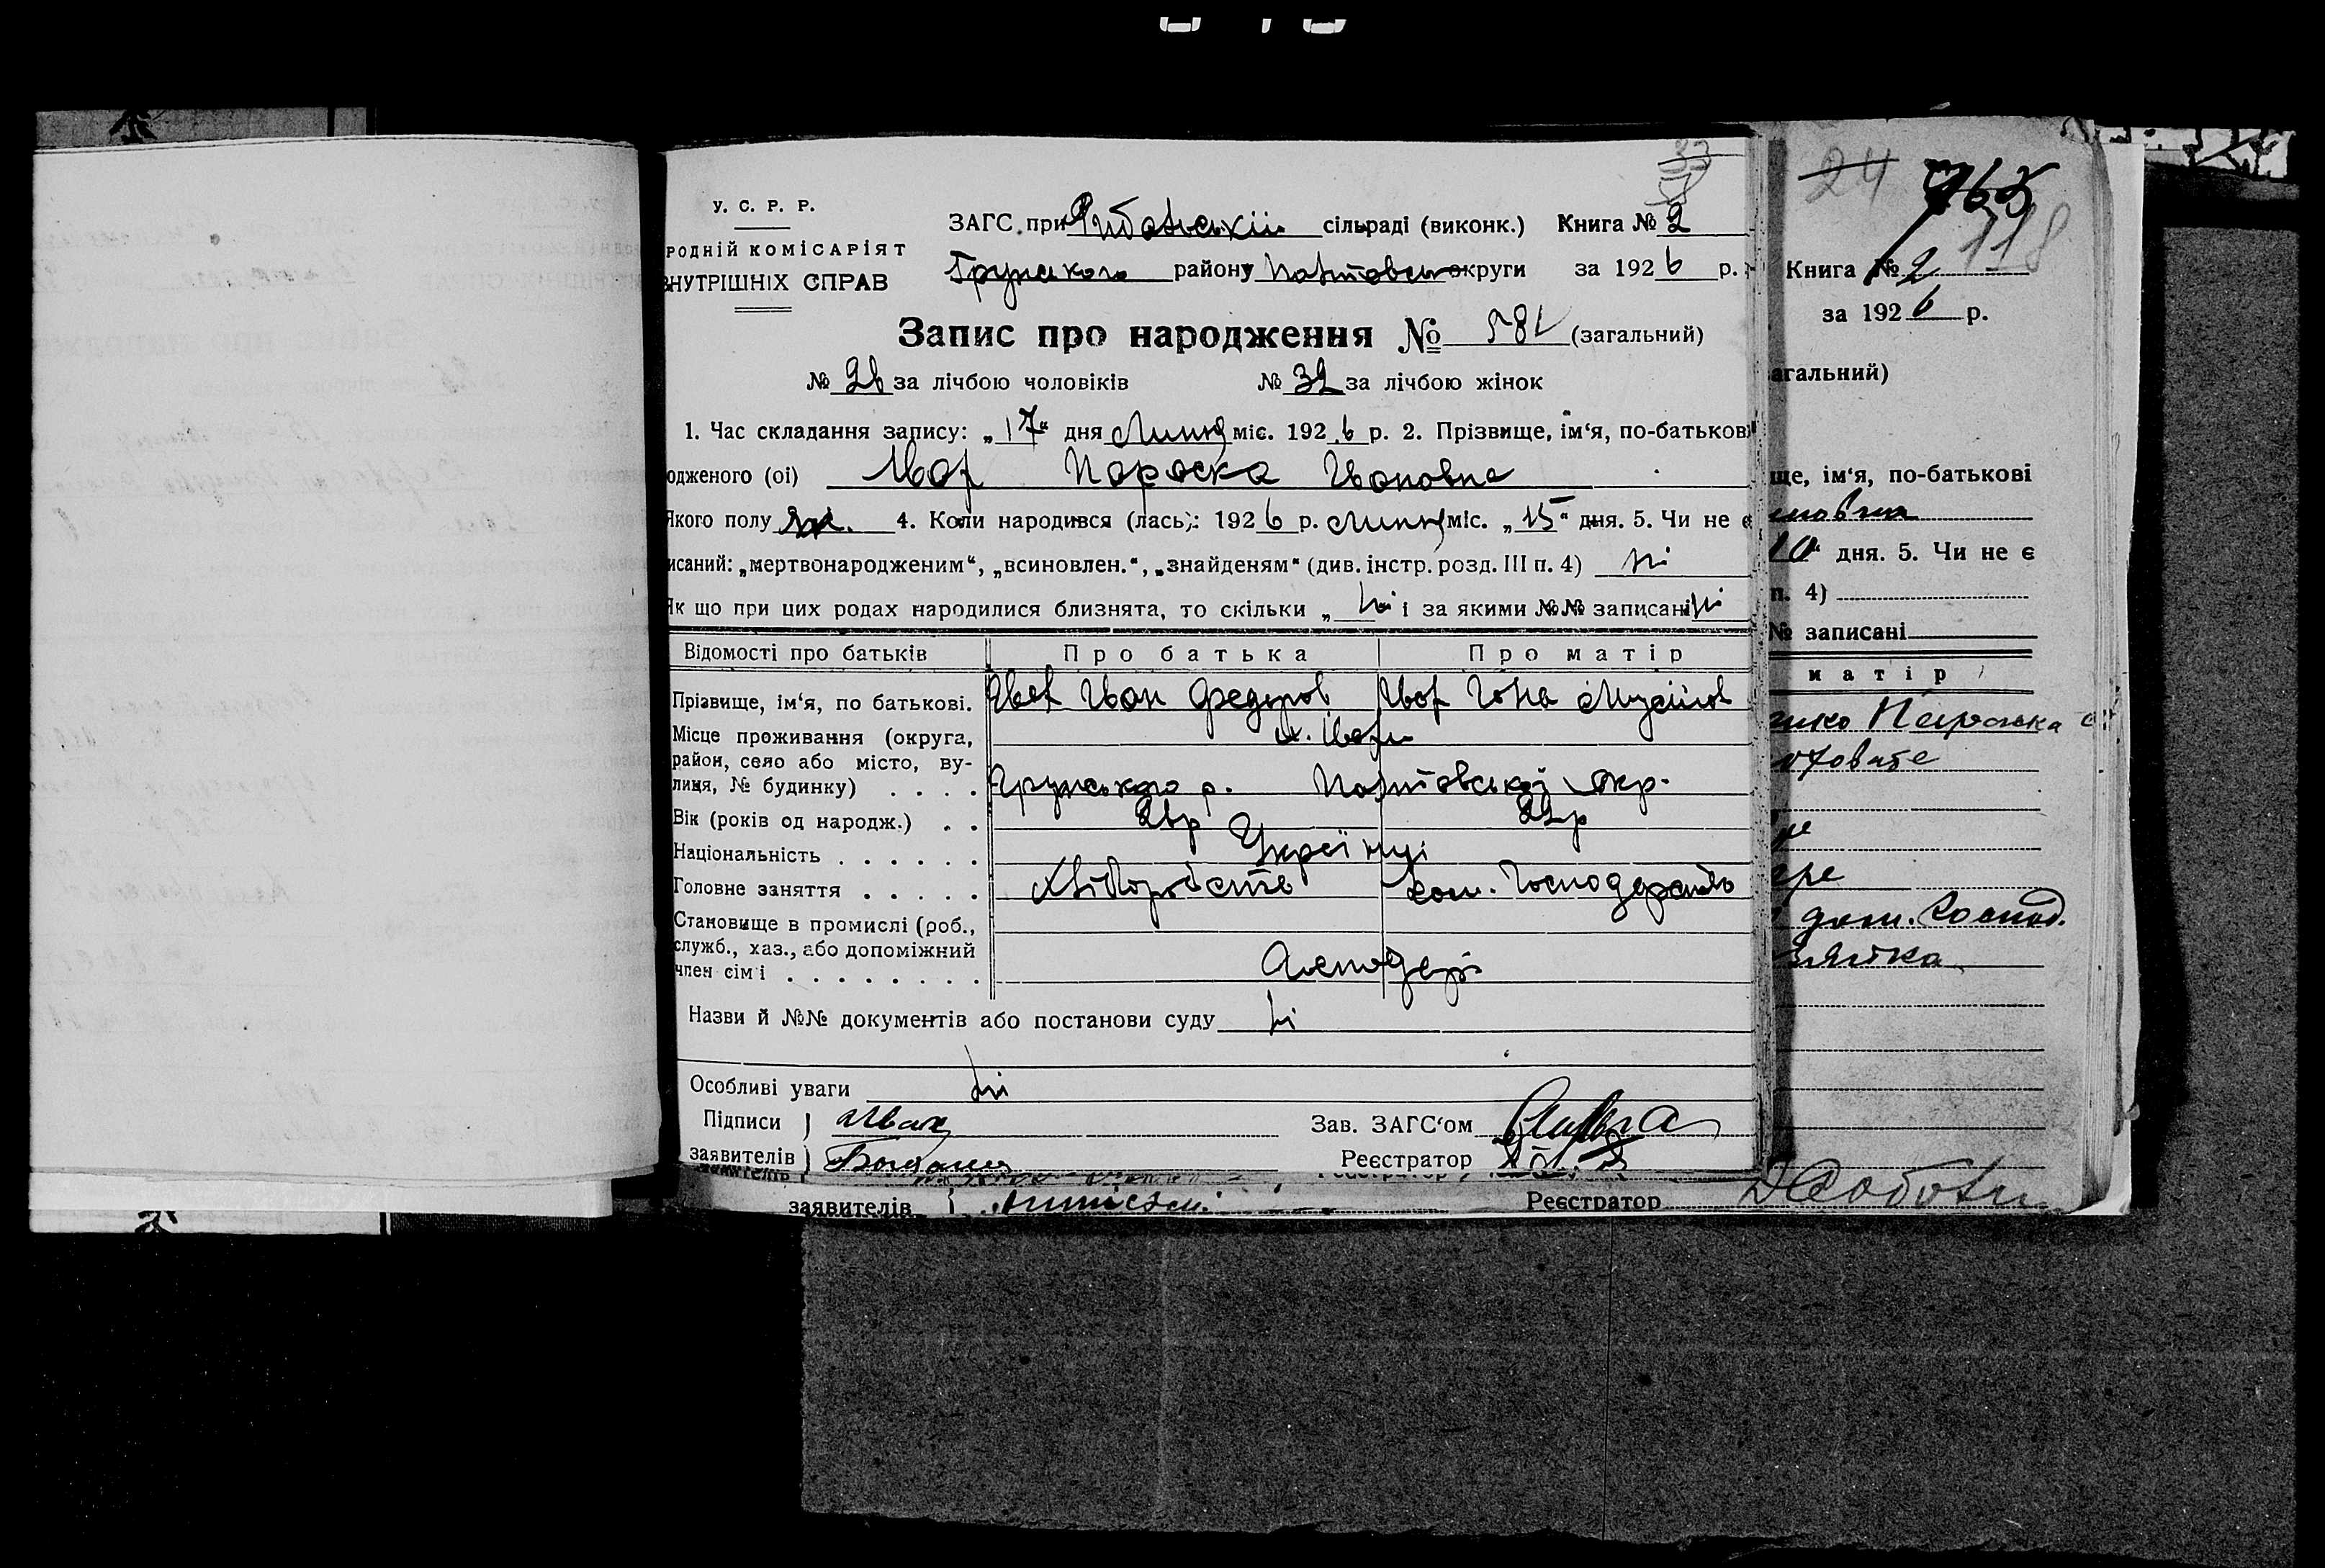 У. С. Р. Р.
РОДНІЙ КОМІСАРІЯТ
ВНУТРІШНІХ СПРАВ
ЗАГС при сільраді (виконк.) Книга № 2
Грунського району Полтавськ округи за 1926 р.
Запис про народження № 581 (загальний)
№ 26 за лічбою чоловіків № 32 за лічбою жінок
1. Час складання запису: „17“ дня Липня міс. 1926 р. 2. Прізвище, ім‘я, по-батькові
одженого (ої) Ивах Параска Ивановна
Якого полу жі. 4. Коли народився (лась): 1926 р. Липня міс. „15“ дня. 5. Чи не є
исаний: „мертвонародженим“, „всиновлен.“, „знайденям“ (див. інстр. розд. III п. 4) ні
Як що при цих родах народилися близнята, то скільки „ ні і за якими №№ записані ні
Відомості про батьків Про батька Про матір
Прізвище, ім‘я, по батькові. Ивах Иван Федоров Ивах
Місце проживання (округа,
район, село або місто, ву-
лиця, № будинку) . . . . Грунського р. Полтавської окр.
Вік (років од народж.) . . 26р 22р
Національність . . . . . . Українці
Головне заняття . . . . . Хліборобство Господарство
Становище в промислі (роб.,
служб., хаз., або допоміжний
член сім‘ї . . . . . . . .
Назви й №№ документів або постанови суду ні
Особливі уваги ні
Підписи Ивах Зав. ЗАГС‘ом
заявителів Реєстратор
заявителів Реєстратор
24 118
Книга № 2
за 1926 р.
агальний)
ще, ім‘я, по-батькові
10“ дня. 5. Чи не є
п. 4)
№ записані
матір
Параска
дом. Господ.